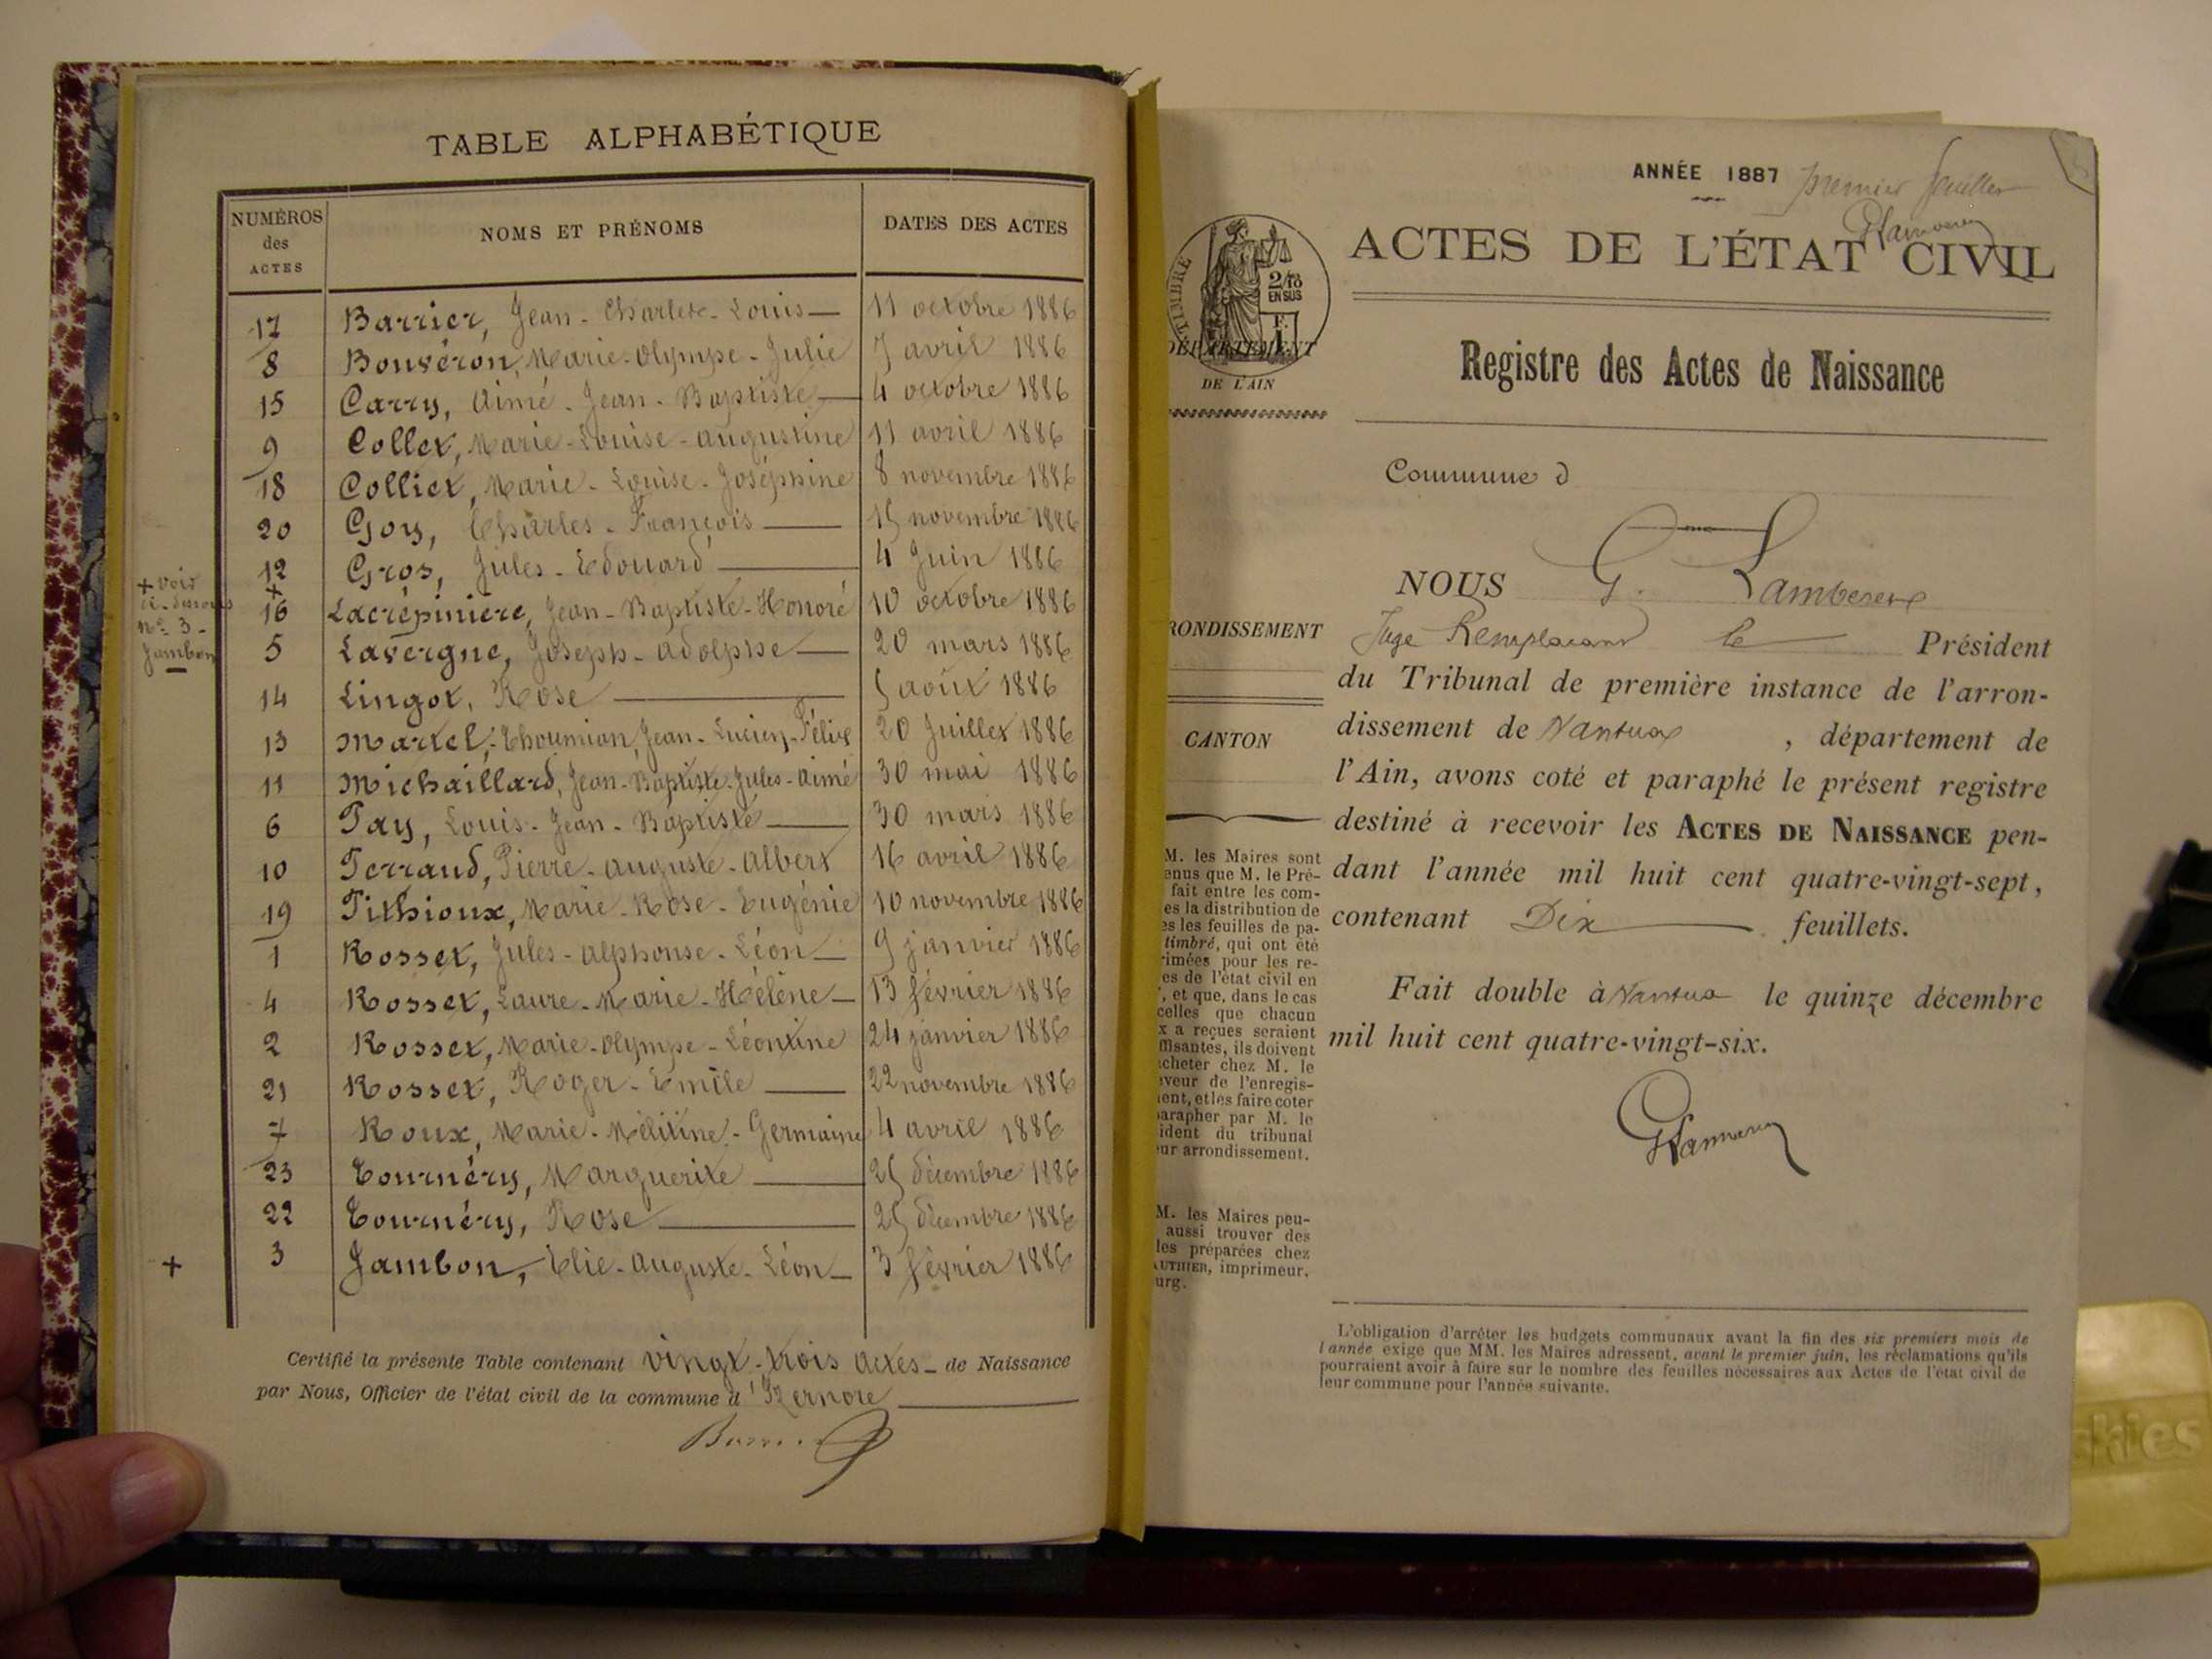 TABLE ALPHABÉTIQUE
NUMÉROS des ACTES NOMS ET PRÉNOMS DATES DES ACTES
17 Barrier, Jean - Charles - Louis 11 octobre 1886
8 Bouvéron, Marie - Olympe - Julie 7 avril 1886
15 Carry, Aimé - Jean - Baptiste 4 octobre 1886
9 Collet, Marie - Louise - Augustine 11 avril 1886
18 Colliet, Marie - Louise - Joséphine 8 novembre 1886
20 Goy, Charles - François 15 novembre 1886
12 Gros, Jules - Edouard 4 Juin 1886
+ voir
ci-dessous
n° 3 -
Jambon
+
16 Lacrépinière, Jean - Baptiste - Honoré 10 octobre 1886
5 Lavergne, Joseph - Adolphe 20 mars 1886
14 Lingot, Rose 5 août 1886
13 Martel - Thoumian, Jean - Lucien - Félix 20 Juillet 1886
11 Michaillard, Jean - Baptiste - Jules - Aimé 30 mai 1886
6 Pay, Louis - Jean - Baptiste 30 mars 1886
10 Perraud, Pierre - Auguste - Albert 16 avril 1886
19 Pithioux, Marie - Rose - Eugénie 10 novembre 1886
1 Rosset, Jules - Alphonse - Léon 9 janvier 1886
4 Rosset, Laure - Marie - Hélène 13 février 1886
2 Rosset, Marie - Olympe - Léontine 24 janvier 1886
21 Rosset, Roger - Emile 22 novembre 1886
7 Roux, Marie - Mélitine - Germaine 4 avril 1886
23 Tournéry, Marguerite 25 décembre 1886
22 Tournéry, Rose 25 décembre 1886
+ 3 Jambon, Elie - Auguste - Léon 3 février 1886
Certifié la présente Table contenant vingt-trois actes de Naissance
par Nous, Officier de l'état civil de la commune d'Izernore
ANNÉE 1887 premier feuillet
ACTES DE L'ÉTAT CIVIL
TIMBRE
2/10
EN SUS
DÉPARTEMENT
DE L'AIN
Registre des Actes de Naissance
Commune d
NOUS G.
RONDISSEMENT
Juge Remplaçant le Président
du Tribunal de première instance de l'arron-
dissement de Nantua, département de
CANTON
l'Ain, avons coté et paraphé le présent registre
destiné à recevoir les ACTES DE NAISSANCE pen-
dant l'année mil huit cent quatre-vingt-sept,
contenant Dix feuillets.
Fait double à Nantua le quinze décembre
mil huit cent quatre-vingt-six.
M. les Maires sont
enus que M. le Pré-
fait entre les com-
es la distribution de
es les feuilles de pa-
timbré, qui ont été
rimées pour les re-
es de l'état civil en
, et que, dans le cas
celles que chacun
x a reçues seraient
ffisantes, ils doivent
cheter chez M. le
veur de l'enregis-
ent, et les faire coter
arapher par M. le
ident du tribunal
ur arrondissement.
M. les Maires peu-
aussi trouver des
les préparées chez
UTHIER, imprimeur,
urg.
L'obligation d'arrêter les budgets communaux avant la fin des six premiers mois de
l'année exige que MM. les Maires adressent, avant le premier juin, les réclamations qu'ils
pourraient avoir à faire sur le nombre des feuilles nécessaires aux Actes de l'état civil de
leur commune pour l'année suivante.